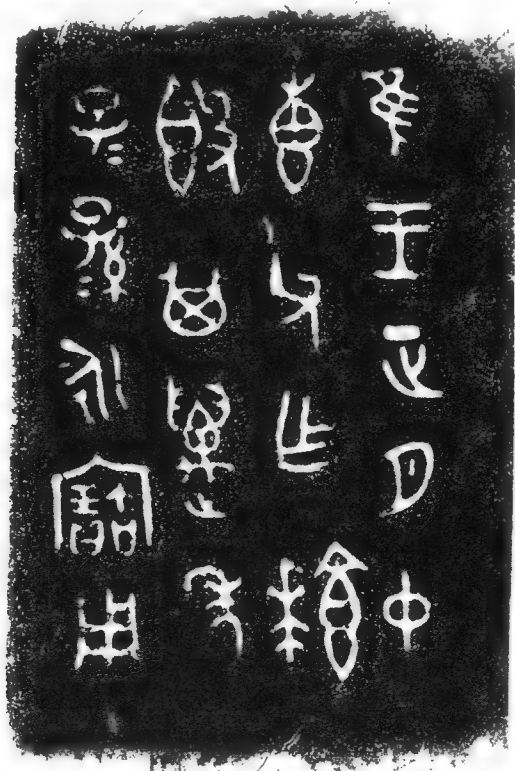 隹王正月中
叀父乍𩛥
𣪘其萬年
子=孫=永寶用